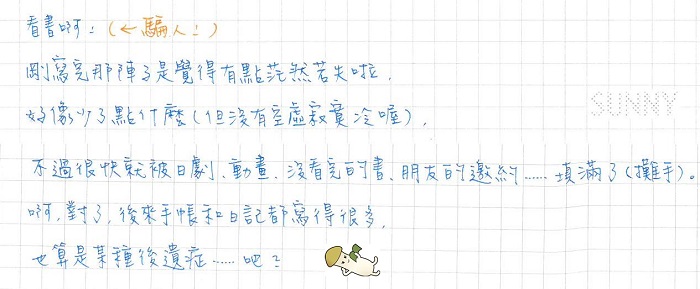 看書啊!(←騙人!)
剛寫完那陣子是覺得有點茫然若失啦,
好像少了點什麼(但沒有空虛寂寞冷喔),
不過很快就被日劇、動畫、沒看完的書、朋友的邀約……填滿了(攤手)。
啊,對了,後來手帳和日記都寫得很多,
也算是某種後遺症……吧?
SUNNY